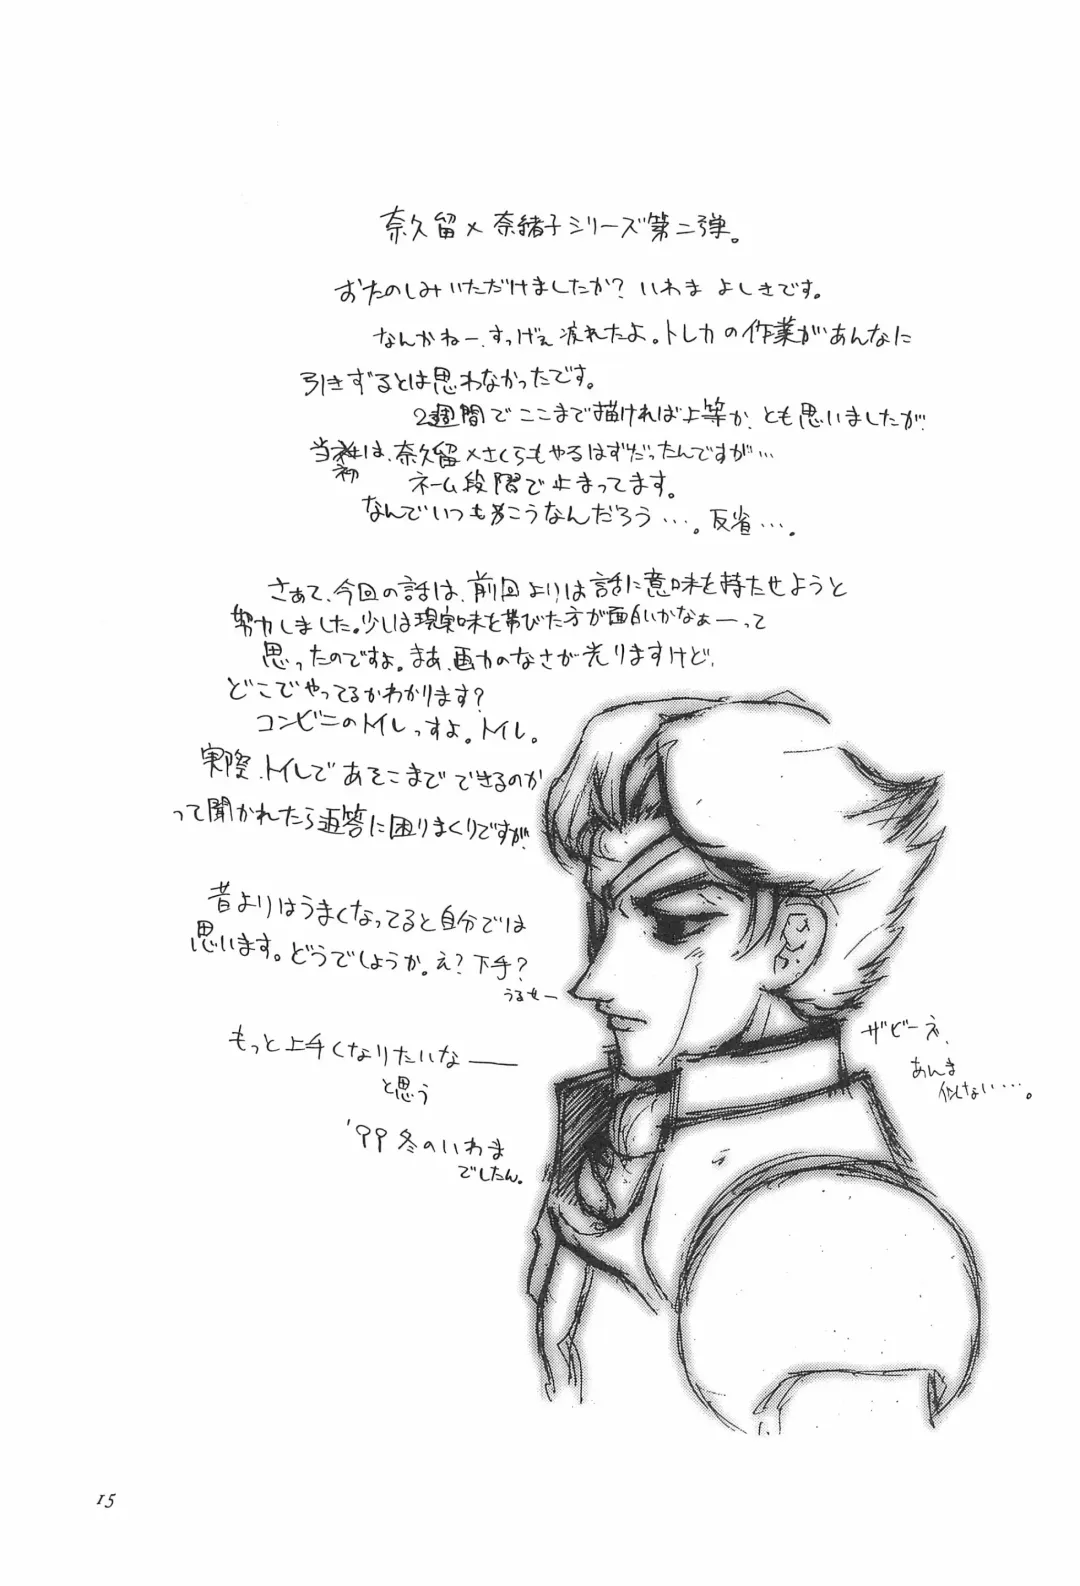 奈久留×奈緒子シリーズ第二弾。
おたのしみいただけましたか？いわま よしきです。
なんかねー、すっげぇ疲れたよ。トレカの作業があんなに
引きずるとは思わなかったです。
2週間でここまで描ければ上等か、とも思いましたが
当初は、奈久留×さくらもやるはずだったんですが…
ネーム段階で止まってます。
なんでいつもこうなんだろう…。反省…。
さあて、今回の話は、前回よりは話に意味を持たせようと
努力しました。少しは現実味を帯びた方が面白いかなぁーって
思ったのですよ。まあ、画力のなさが光りますけど、
どこでやってるかわかります？
コンビニのトイレっすよ。トイレ。
実際、トイレであそこまでできるのか
って聞かれたら返答に困りまくりですが、
昔よりはうまくなってると自分では
思います。どうでしょうか。え？下手？
うるせー
もっと上手くなりたいなー
と思う
'99 冬のいわま
でしたん。
ザビーネ、
あんま
似てない…。
15